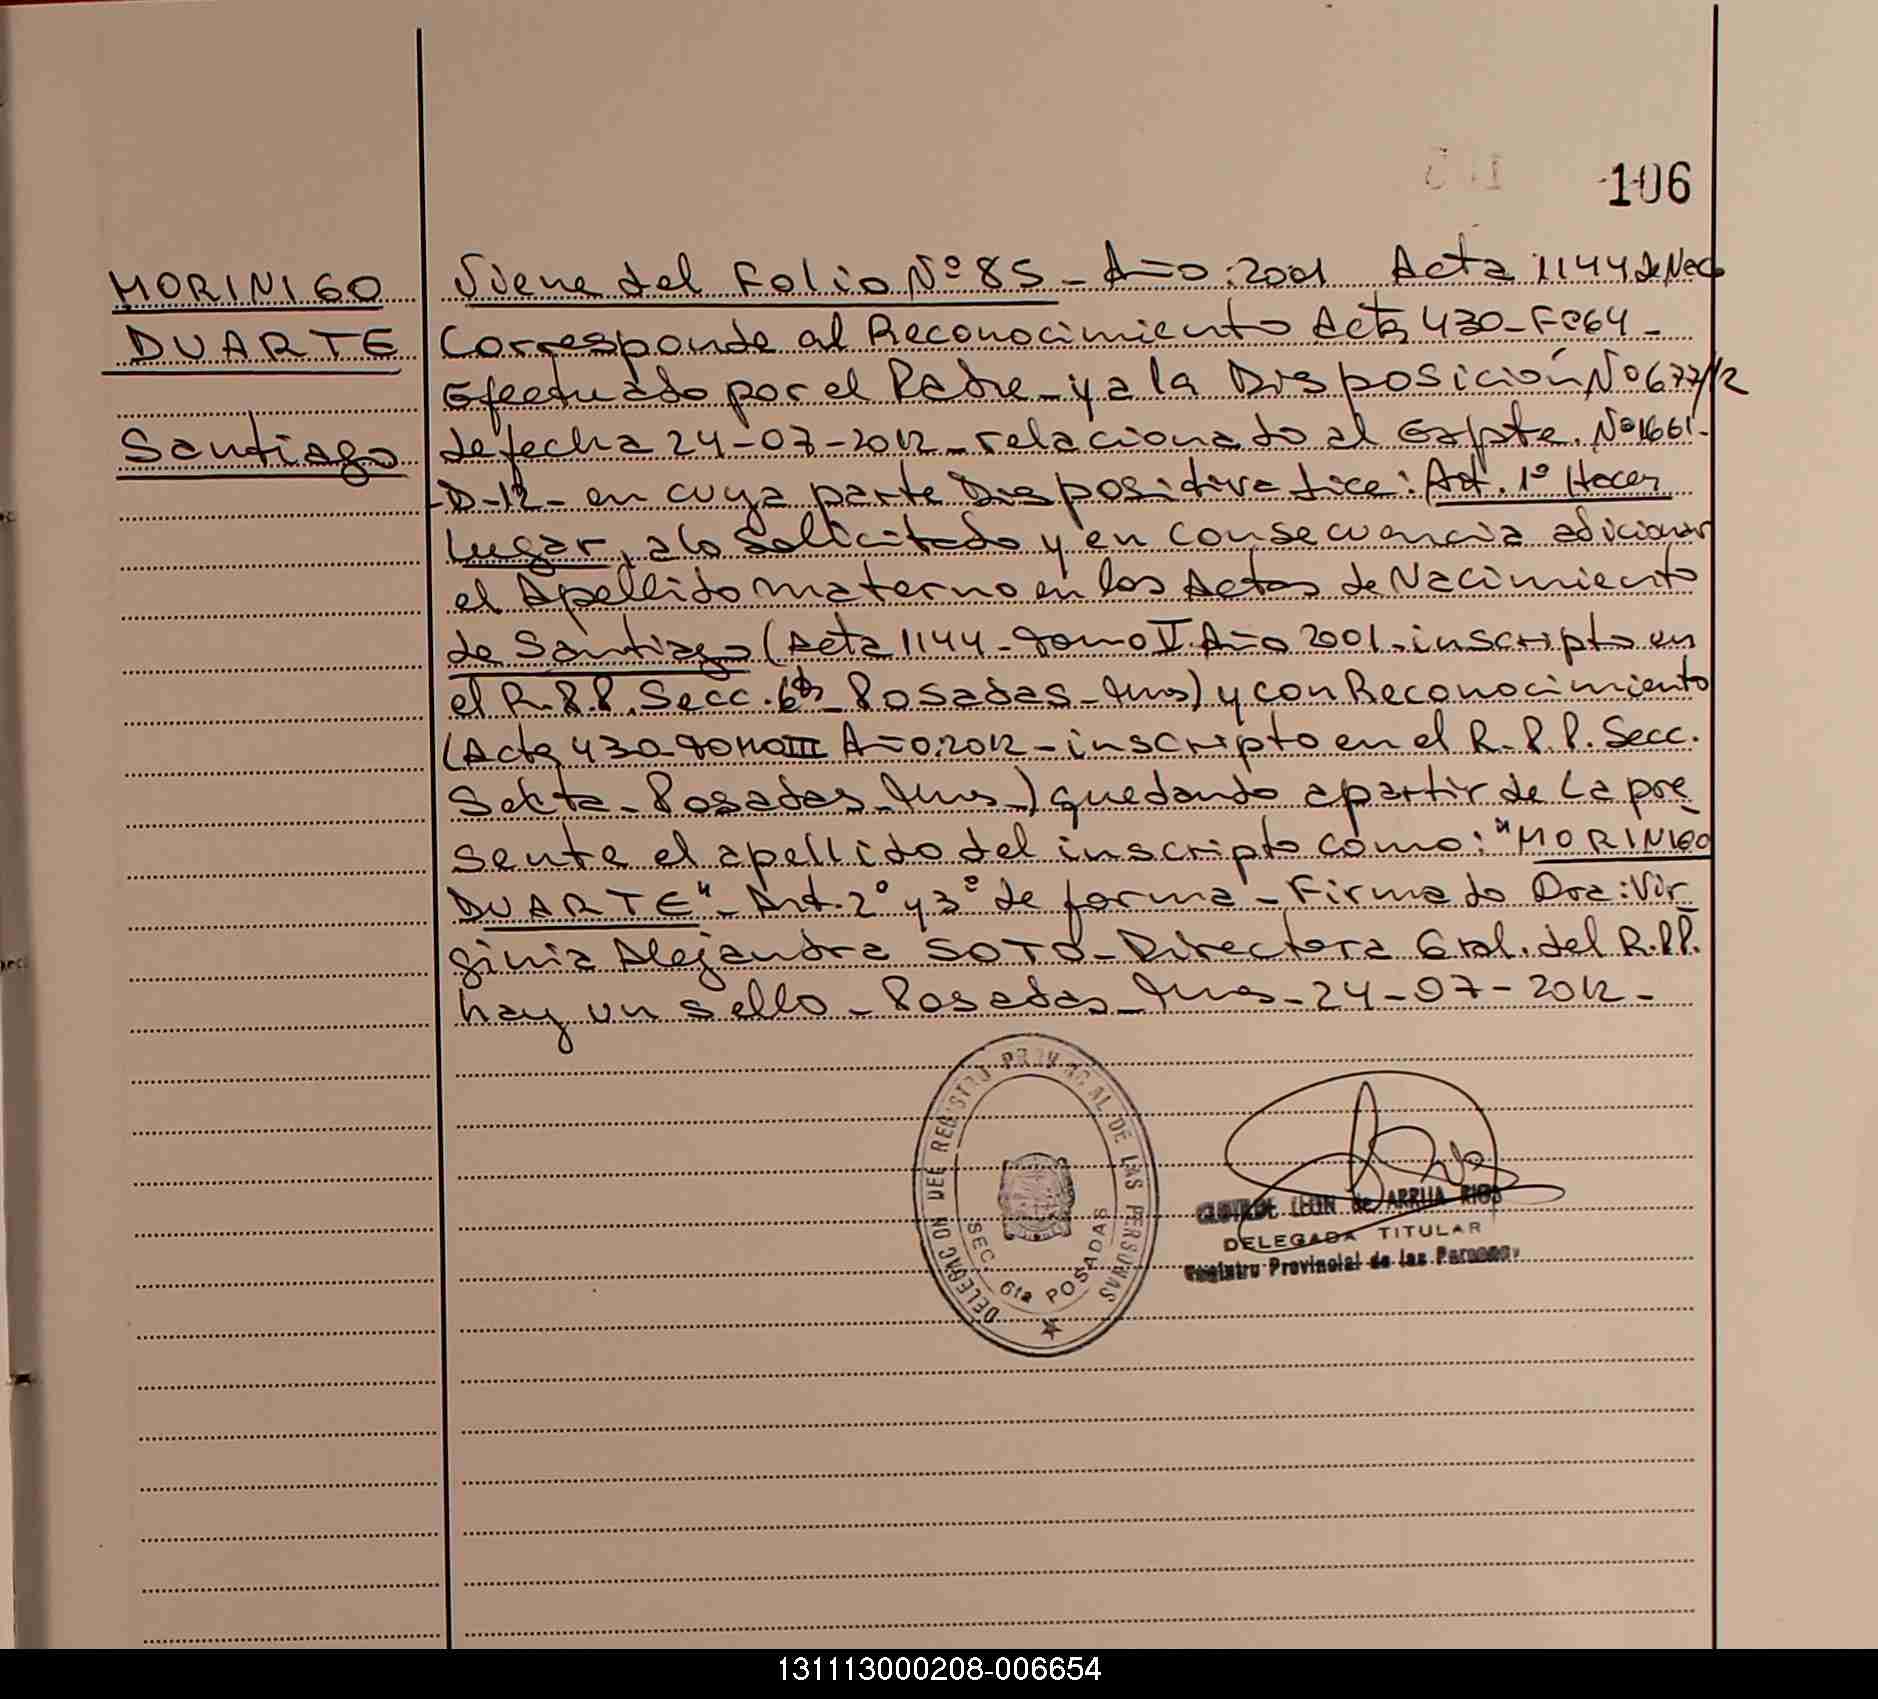 106
MORINIGO
DUARTE
Santiago
Viene del Folio Nº 85 - Año: 2001 Acta 1144 de Nac
Corresponde al Reconocimiento Acta 430 - Fº 64 -
Efectuado por el Padre - y a la Disposición Nº 677/12
de fecha 24-07-2012 - relacionado al Expte. Nº 1661-
-D-12 - en cuya parte Dispositiva dice: Art. 1º Hacer
Lugar, a lo solicitado y en consecuencia adicionar
el Apellido materno en los Actas de Nacimiento
de Santiago (Acta 1144 - Tomo V. Año 2001 - inscripto en
el R.P.P. Secc. 6ta - Posadas - Mnes) y con Reconocimiento
(Acta 430 - Tomo III Año: 2012 - inscripto en el R.P.P. Secc.
Sexta - Posadas - Mnes -) quedando a partir de La pre
sente el apellido del inscripto como: "MORINIGO
DUARTE" - Art. 2º y 3º de forma - Firmado Dra: Vir
ginia Alejandra SOTO - Directora Gral. del R.P.P.
hay un sello - Posadas - Mnes - 24-07-2012 -
DELEGACION DEL REGISTRO PROVINCIAL DE LAS PERSONAS
SEC. 6ta POSADAS
CLOTILDE LEON de ARRUA RIOS
DELEGADA TITULAR
Registro Provincial de las Personas
131113000208-006654